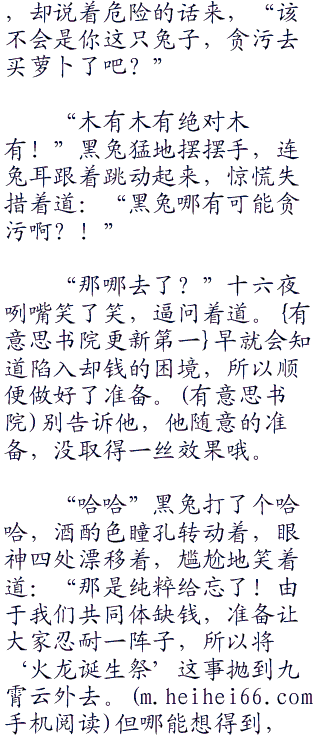 ，却说着危险的话来，“该
不会是你这只兔子，贪污去
买萝卜了吧？”
“木有木有绝对木
有！”黑兔猛地摆摆手，连
兔耳跟着跳动起来，惊慌失
措着道：“黑兔哪有可能贪
污啊？！”
“那哪去了？”十六夜
咧嘴笑了笑，逼问着道。{有
意思书院更新第一}早就会知
道陷入却钱的困境，所以顺
便做好了准备。(有意思书
院)别告诉他，他随意的准
备，没取得一丝效果哦。
“哈哈”黑兔打了个哈
哈，酒酌色瞳孔转动着，眼
神四处漂移着，尴尬地笑着
道：“那是纯粹给忘了！由
于我们共同体缺钱，准备让
大家忍耐一阵子，所以将
‘火龙诞生祭’这事抛到九
霄云外去。(m.heihei66.com
手机阅读)但哪能想得到，